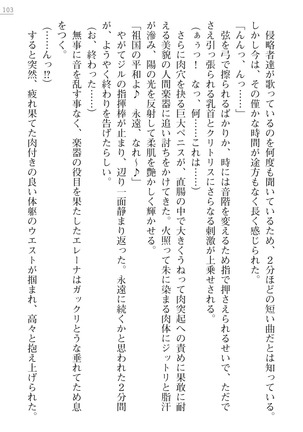 103
侵略者達が歌っているのを何度も聞いているため、2分ほどの短い曲だとは知っている。
しかし今は、その僅かな時間が途方もなく長く感じられた。
「んんっ、んっ……」
弦を弓で擦られるばかりか、時には音階を変えるため指で押さえられるせいで、ただで
さえ引っ張られる乳首とクリトリスにさらなる刺激が上乗せされる。
(ぁうっ！　なっ、何……これは……)
さらに肉穴を抉る巨大ペニスが、直腸の中で大きくうねって肉突起への責めに果敢に耐
える美貌の人間楽器に追い討ちをかけてきた。火照って朱に染まる肉体にジットリと脂汗
が滲み、陽の光を反射して柔肌を艶かしく輝かせる。
「祖国の平和よ　永遠、なれ～♪」
(よ、ようやく……)
やがてジルの指揮棒が止まり、辺り一面静まり返った。永遠に続くかと思われた2分間
が、ようやく終わりを告げたらしい。
(お、終わった……)
無事に音を乱す事なく、楽器の役目を果たしたエレーナはガックリとうな垂れてため息
をつく。
(……んっ!?)
すると突然、疲れ果てた肉付きの良い体躯のウエストが掴まれ、高々と抱え上げられた。